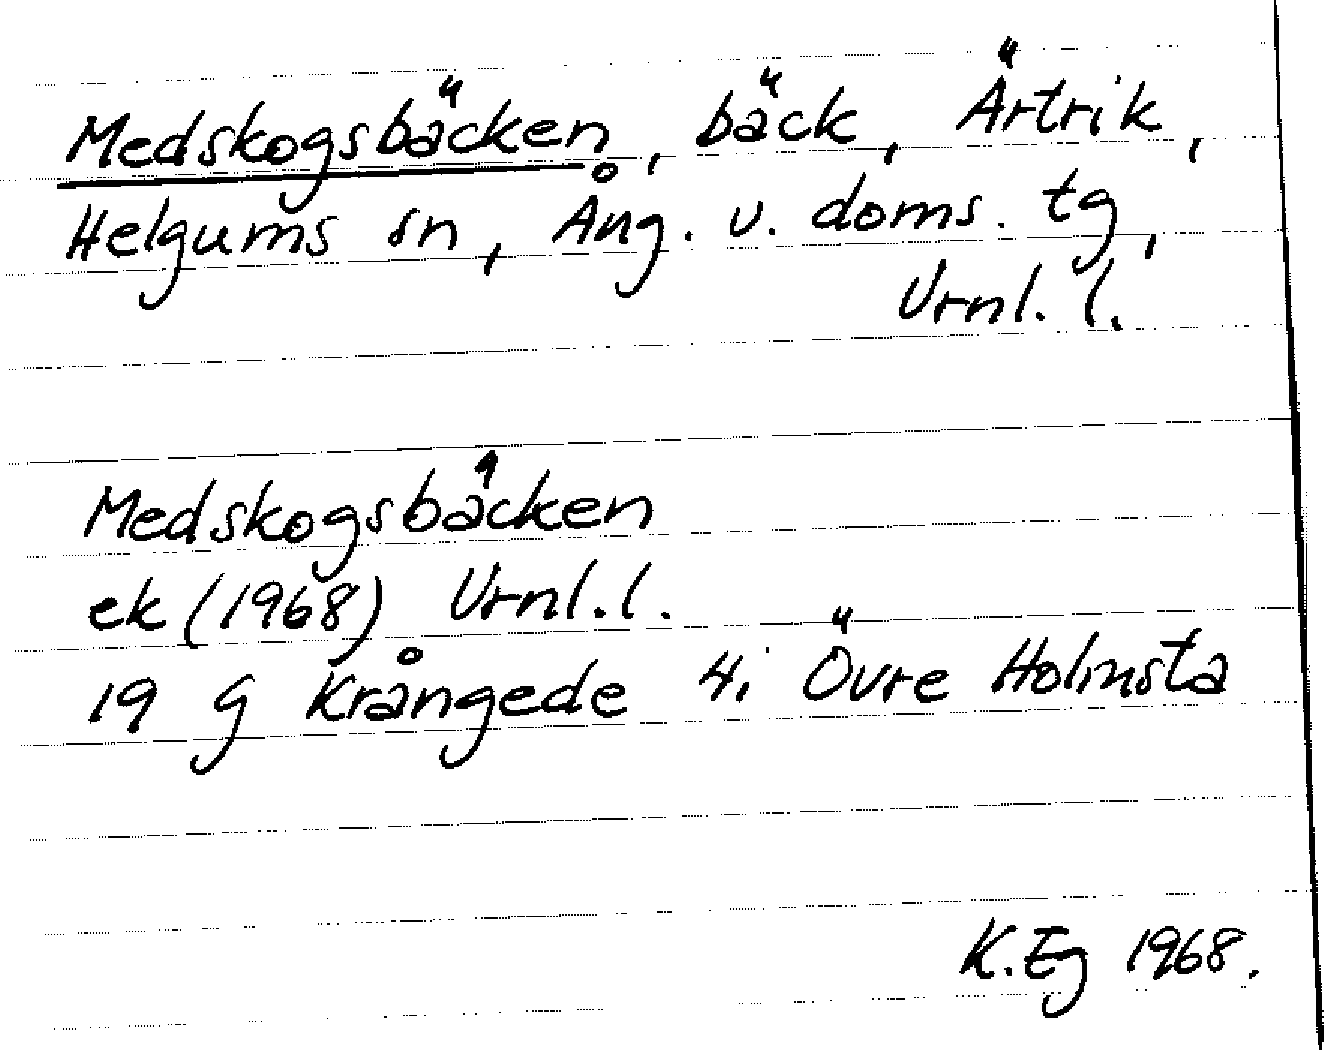 Medskogsbäcken, bäck, Ärtrik,
Helgums sn, Ång. v. doms. tg,
Vrnl. l.
Medskogsbäcken
ek (1968) Vrnl. l.
19 G Krångede 4i Övre Holmsta
K. Eg 1968.